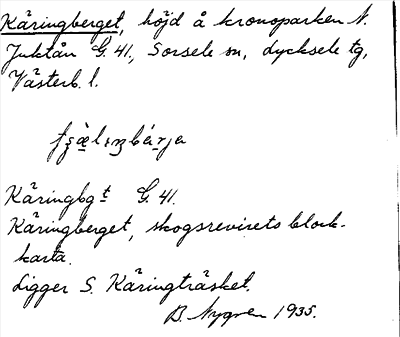 Käringberget, höjd å kronoparken N.
Juktån G. 41., Sorsele sn, Lycksele tg,
Västerb. l.
Käringbgt G. 41.
Käringberget, skogsrevirets block-
karta.
Ligger S. Käringträsket.
B. Nygren 1935.